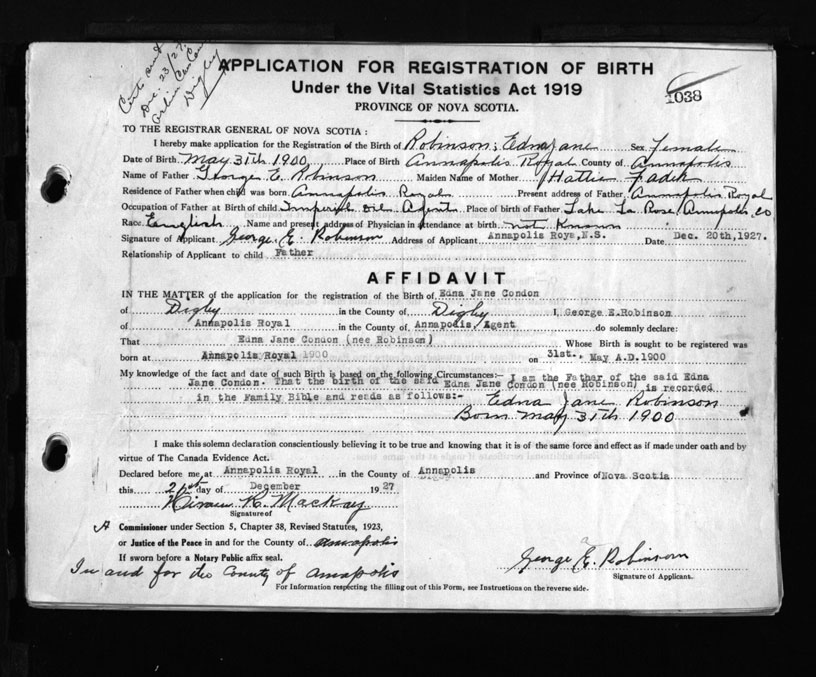 Cert. sent
Dec. 23/27
Digby
APPLICATION FOR REGISTRATION OF BIRTH
Under the Vital Statistics Act 1919
PROVINCE OF NOVA SCOTIA.
1038
TO THE REGISTRAR GENERAL OF NOVA SCOTIA:
I hereby make application for the Registration of the Birth of Robinson; Edna Jane Sex Female
Date of Birth May 31th 1900 Place of Birth Annapolis Royal County of Annapolis
Name of Father George E. Robinson Maiden Name of Mother Hattie
Residence of Father when child was born Annapolis Royal Present address of Father Annapolis Royal
Occupation of Father at Birth of child Imperial Oil Agent Place of birth of Father Lake La Rose Annapolis co
Race English Name and present address of Physician in attendance at birth not Known
Signature of Applicant George E. Robinson Address of Applicant Annapolis Roya, N.S. Date Dec. 20th, 1927.
Relationship of Applicant to child Father
AFFIDAVIT
IN THE MATTER of the application for the registration of the Birth of Edna Jane Condon
of Digby in the County of Digby I, George E.Robinson
of Annapolis Royal in the County of Annapolis, Agent do solemnly declare:
That Edna Jane Condon (nee Robinson) Whose Birth is sought to be registered was
born at Annapolis Royal 1900 on 31st., May A.D.1900
My knowledge of the fact and date of such Birth is based on the following Circumstances:— I am the Father of the said Edna
Jane Condon. That the birth of the said Edna Jane Condon (nee Robinson) is recorded
in the Family Bible and reads as follows:- Edna Jane Robinson
Born May 31th 1900
I make this solemn declaration conscientiously believing it to be true and knowing that it is of the same force and effect as if made under oath and by
virtue of The Canada Evidence Act.
Declared before me at Annapolis Royal in the County of Annapolis and Province of Nova Scotia
this 21st day of December 1927
Hiram R. Mackay
Signature of
A Commissioner under Section 5, Chapter 38, Revised Statutes, 1923,
or Justice of the Peace in and for the County of Annapolis
If sworn before a Notary Public affix seal.
In and for the County of Annapolis
George E. Robinson
Signature of Applicant.
For Information respecting the filling out of this Form, see Instructions on the reverse side.